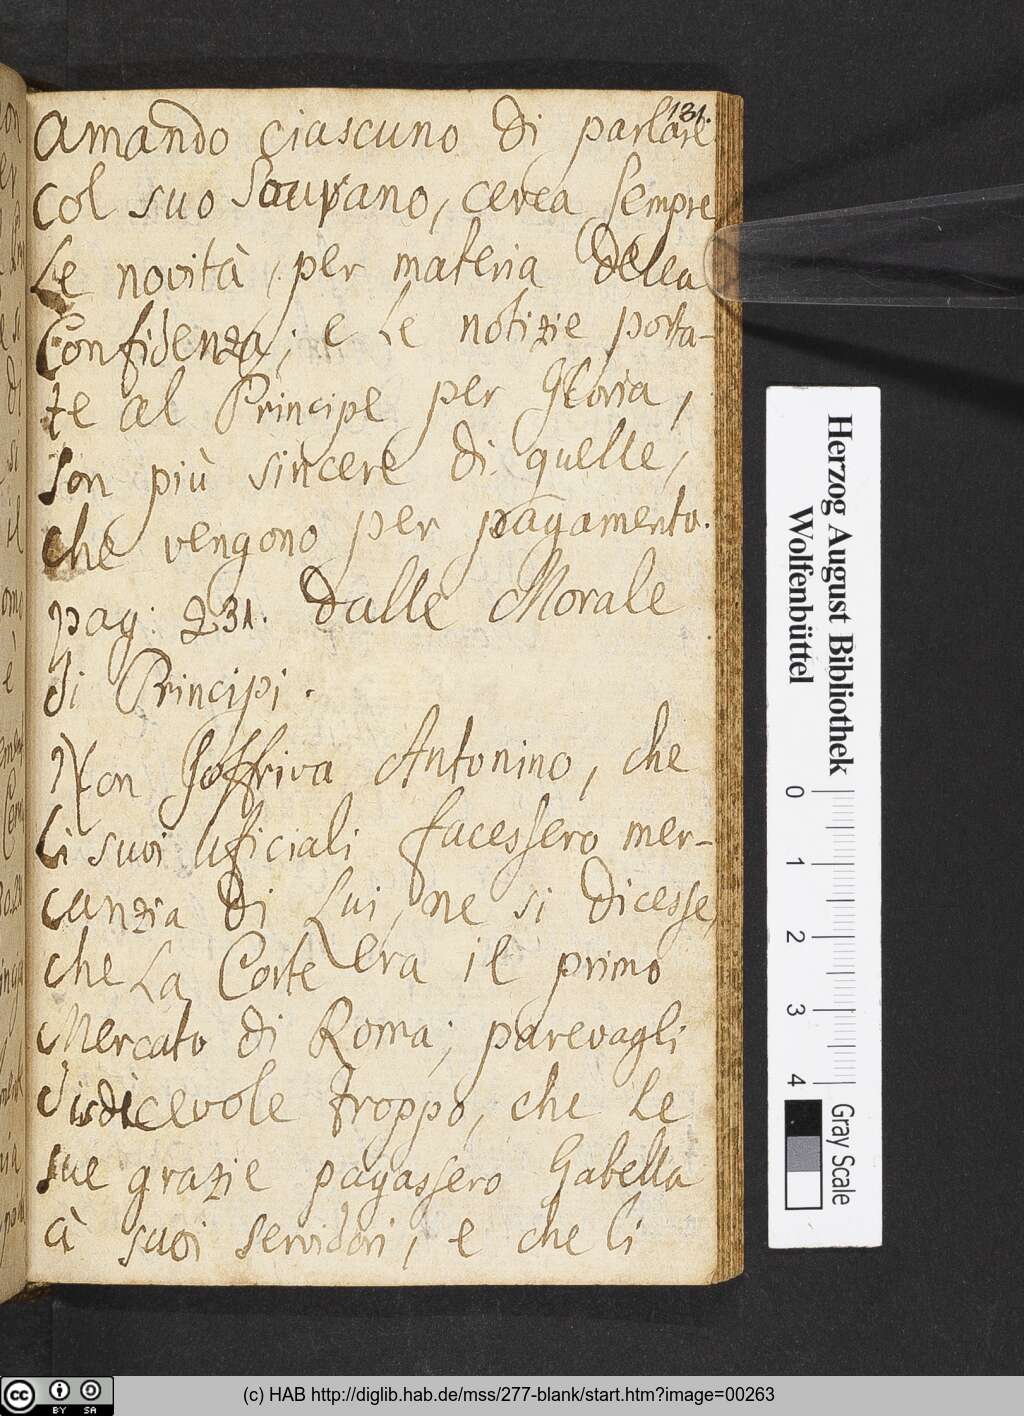 131.
amando ciascuno di parlare
col suo Sourano, cerca sempre
Le novità, per materia della
Confidenza; e Le notizie porta-
te al Principe per Gloria,
son più sincere di quelle,
che vengono per pagamento.
pag: 231. dalle Morale
di Principi.
Non soffriva Antonino, che
li suoi uficiali facessero mer-
canzia di Lui, ne si dicesse,
che La Corte era il primo
Mercato di Roma; parevagli
disdicevole troppo, che Le
sue grazie pagassero Gabella
à suoi servidori, e che li
Herzog August Bibliothek
Wolfenbüttel
0 1 2 3 4
Gray Scale
cc BY SA
(c) HAB http://diglib.hab.de/mss/277-blank/start.htm?image=00263